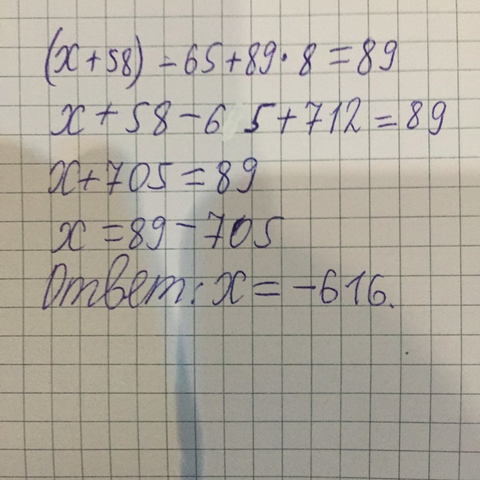 (x+58)-65+89·8=89
x+58-65+712=89
x+705=89
x=89-705
Ответ: x=-616.